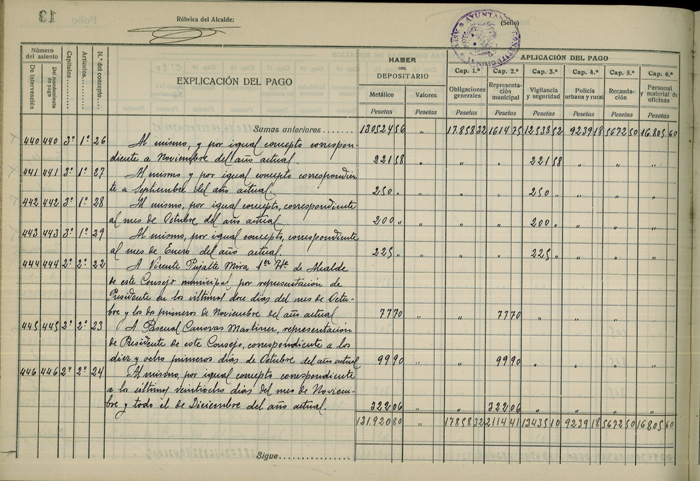 13
Rúbrica del Alcalde:
(Sello)
Número del asiento
De intervención
Capítulos
Artículos
N.º del concepto
EXPLICACIÓN DEL PAGO
HABER DEL DEPOSITARIO
Metálico
Valores
Pesetas Pesetas
APLICACIÓN DEL PAGO
Cap. 1.º Cap. 2.º Cap. 3.º Cap. 4.º Cap. 5.º Cap. 6.º
Obligaciones generales
Representación municipal
Vigilancia y seguridad
Policía urbana y rural
Recaudación
Personal y material de oficinas
Pesetas Pesetas Pesetas Pesetas Pesetas Pesetas
Sumas anteriores 130524 56 " 17858 32 1614 75 12538 52 9239 18 5672 50 16805 60
440 440 3º 1º 26 Al mismo, y por igual concepto correspon-
diente a Noviembre del año actual. 221 58 " " " 221 58 " " "
441 441 3º 1º 27 Al mismo y por igual concepto correspondien-
te a Septiembre del año actual. 250 " " " " 250 " " " "
442 442 3º 1º 28 Al mismo, por igual concepto, correspondiente
al mes de Octubre, del año actual. 200 " " " " 200 " " " "
443 443 3º 1º 29 Al mismo, por igual concepto, correspondiente
al mes de Enero del año actual. 225 " " " " 225 " " " "
444 444 2º 2º 22 A Vicente Pujalte Mira 1er Tte de Alcalde
de este Consejo municipal, por representación de
Presidente en los últimos doce días del mes de Octu-
bre y los dos primeros de Noviembre del año actual 77 70 " " 77 70 " " " "
445 445 2º 2º 23 A Pascual Canovas Martinez, representación
de Presidente de este Consejo, correspondiente a los
diez y ocho primeros días de Octubre del año actual 99 90 " " 99 90 " " " "
446 446 2º 2º 24 Al mismo, por igual concepto correspondiente
a los últimos veintiocho días del mes de Noviem-
bre y todo el de Diciembre del año actual. 322 06 " " 322 06 " " " "
131920 80 " 17858 32 2114 41 13435 10 9239 18 5672 50 16805 60
Sigue